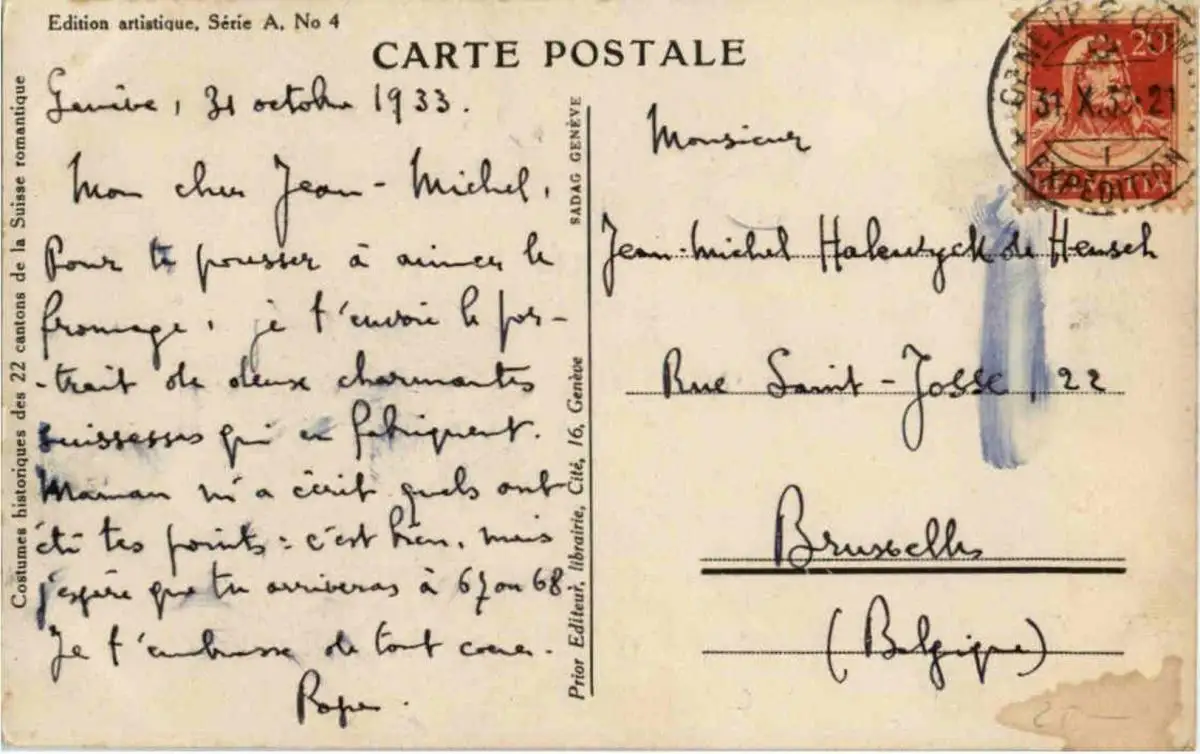 Edition artistique, Série A, No 4
CARTE POSTALE
Costumes historiques des 22 cantons de la Suisse romantique
Genève, 31 octobre 1933.
Mon cher Jean-Michel,
Pour te pousser à aimer le
fromage, je t'envoie le por-
-trait de deux charmantes
suissesses qui en fabriquent.
Maman m'a écrit quels ont
été tes points : c'est bien, mais
j'espère que tu arriveras à 67 ou 68.
Je t'embrasse de tout coeur.
Papa.
SADAG GENÈVE
Prior Editeur, librairie, Cité, 16, Genève
Monsieur
Jean-Michel Halewyck de Heusch
Rue Saint-Josse, 22
Bruxelles
(Belgique)
20
GENÈVE 2
31.X.33-21
1
EXPÉDITION